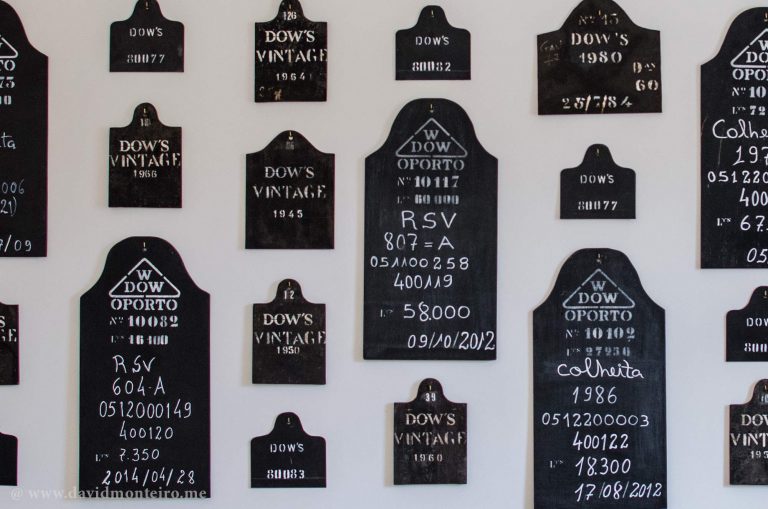 73
006
21)
7/09
DOW'S
80077
18
DOW'S
VINTAGE
1966
W
DOW
OPORTO
Nº 10082
Lts 16400
RSV
604-A
0512000149
400120
Lts 7.350
2014/04/28
126
DOW'S
VINTAGE
1964
DOW'S
VINTAGE
1945
12
DOW'S
VINTAGE
1950
DOW'S
80083
DOW'S
80082
W
DOW
OPORTO
Nº 10117
Lts 60 000
RSV
807=A
051100258
400119
Lts 58.000
09/10/2012
39
DOW'S
VINTAGE
1960
DOW'S
1980
60
23/7/84
DOW'S
80077
W
DOW
OPORTO
Nº 10102
Lts 27250
colheita
1986
0512200003
400122
Lts 18.300
17/08/2012
W
DOW
OPORTO
Nº 10
Lts 72
Colheit
197
0512200
400
Lts 67.
05
DOW
800
DOW'
VINTA
195
© www.davidmonteiro.me